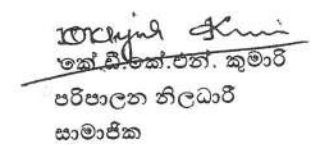 කේ.ඩී.කේ.එන්. කුමාරි
පරිපාලන නිලධාරී
සාමාජික